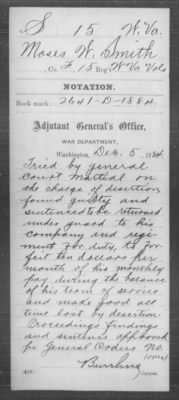 S 15 W. Va.
Moses W. Smith
, Co. F, 15 Reg't W Va Vols
NOTATION.
Book mark: 2641-D-1884
Adjutant General's Office,
WAR DEPARTMENT,
Washington, Dec. 5, 1884.
Tried by general
court martial on
the charge of desertion
found guilty and
sentenced to be returned
under guard to his
company and regi-
ment for duty, to for-
feit ten dollars per
month of his monthly
pay during the balance
of his term of service
and make good all
time lost by desertion.
Proceedings findings
and sentence approved
per General Orders No.
Copyist.